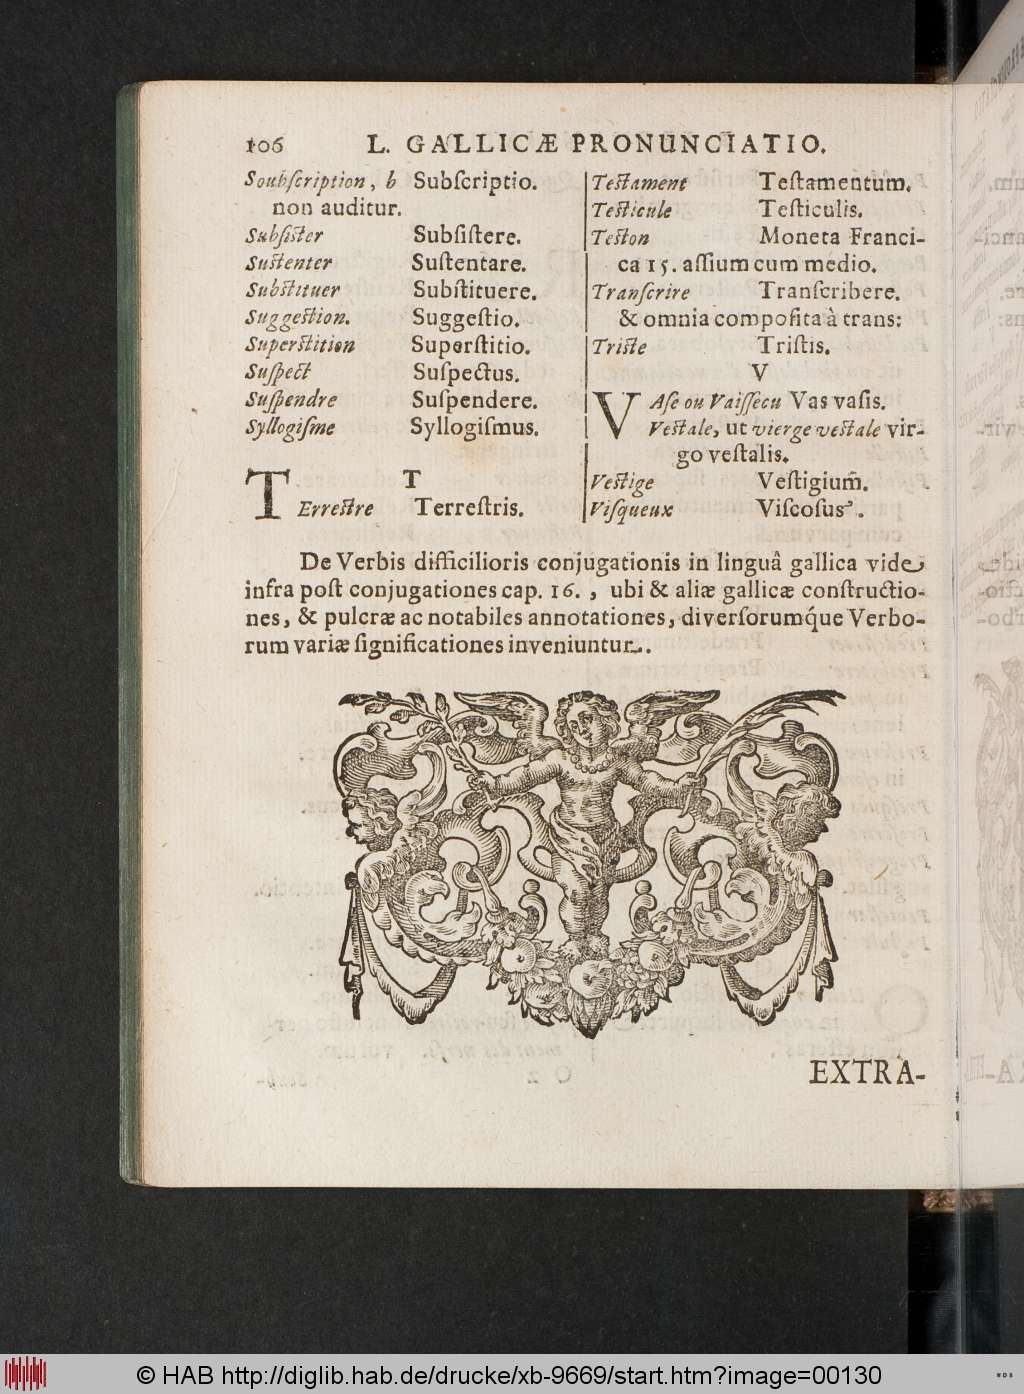 106 L. GALLICÆ PRONUNCIATIO.
Soubſcription, b Subſcriptio.
non auditur.
Subſiſter Subſiſtere.
Suſtenter Suſtentare.
Subſtituer Subſtituere.
Suggeſtion. Suggeſtio.
Superſtition Superſtitio.
Suſpect Suſpectus.
Suſpendre Suſpendere.
Syllogiſme Syllogiſmus.
T
TErreſtre Terreſtris.
Teſtament Teſtamentum.
Teſticule Teſticulis.
Teſton Moneta Franci-
ca 15. aſſium cum medio.
Tranſcrire Tranſcribere.
& omnia compoſita à trans:
Triſte Triſtis.
V
VAſe ou Vaiſſeau Vas vaſis.
Veſtale, ut vierge veſtale vir-
go veſtalis.
Veſtige Veſtigium.
Viſqueux Viſcoſus.
De Verbis difficilioris conjugationis in linguâ gallica vide
infra poſt conjugationes cap. 16. , ubi & aliæ gallicæ conſtructio-
nes, & pulcræ ac notabiles annotationes, diverſorumq́ue Verbo-
rum variæ ſignificationes inveniuntur.
EXTRA-
© HAB http://diglib.hab.de/drucke/xb-9669/start.htm?image=00130